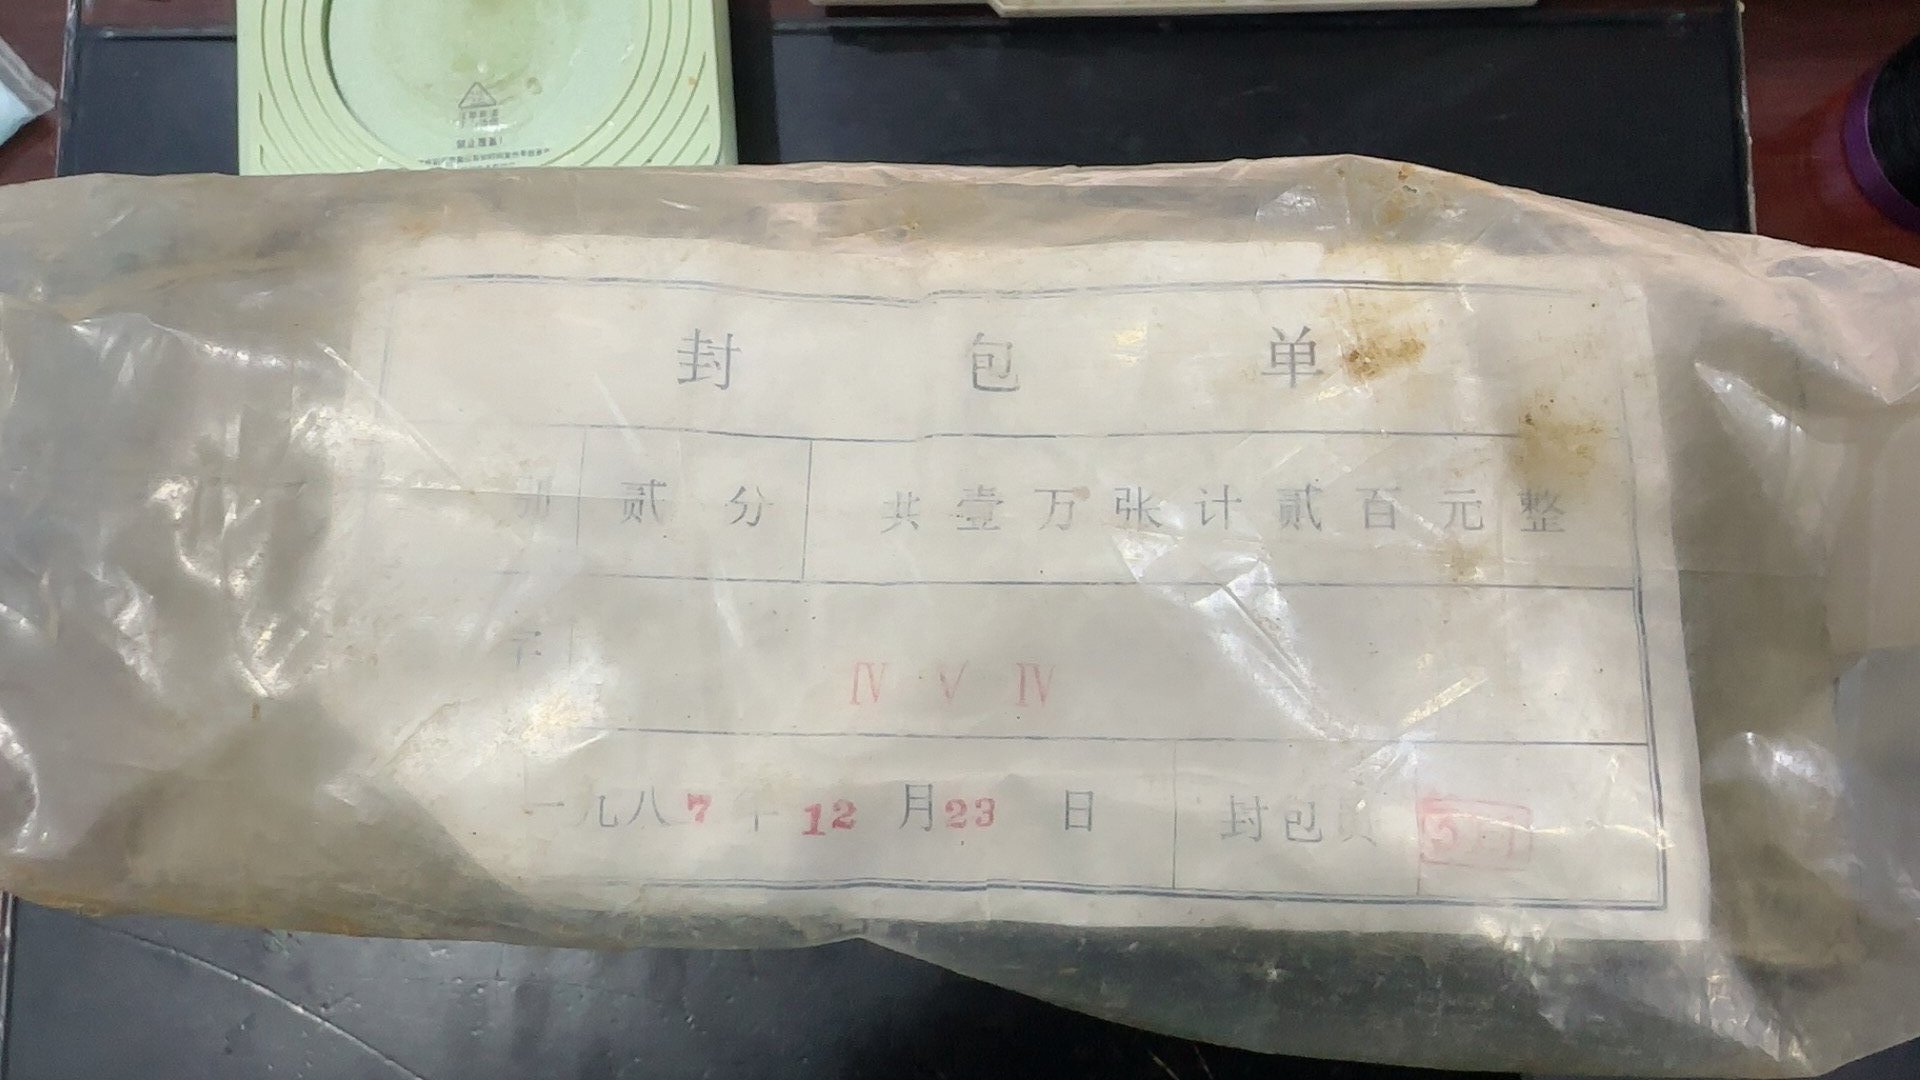 封包单
别 贰分 共壹万张计贰百元整
字 Ⅳ Ⅴ Ⅳ
一九八7年12月23日 封包员